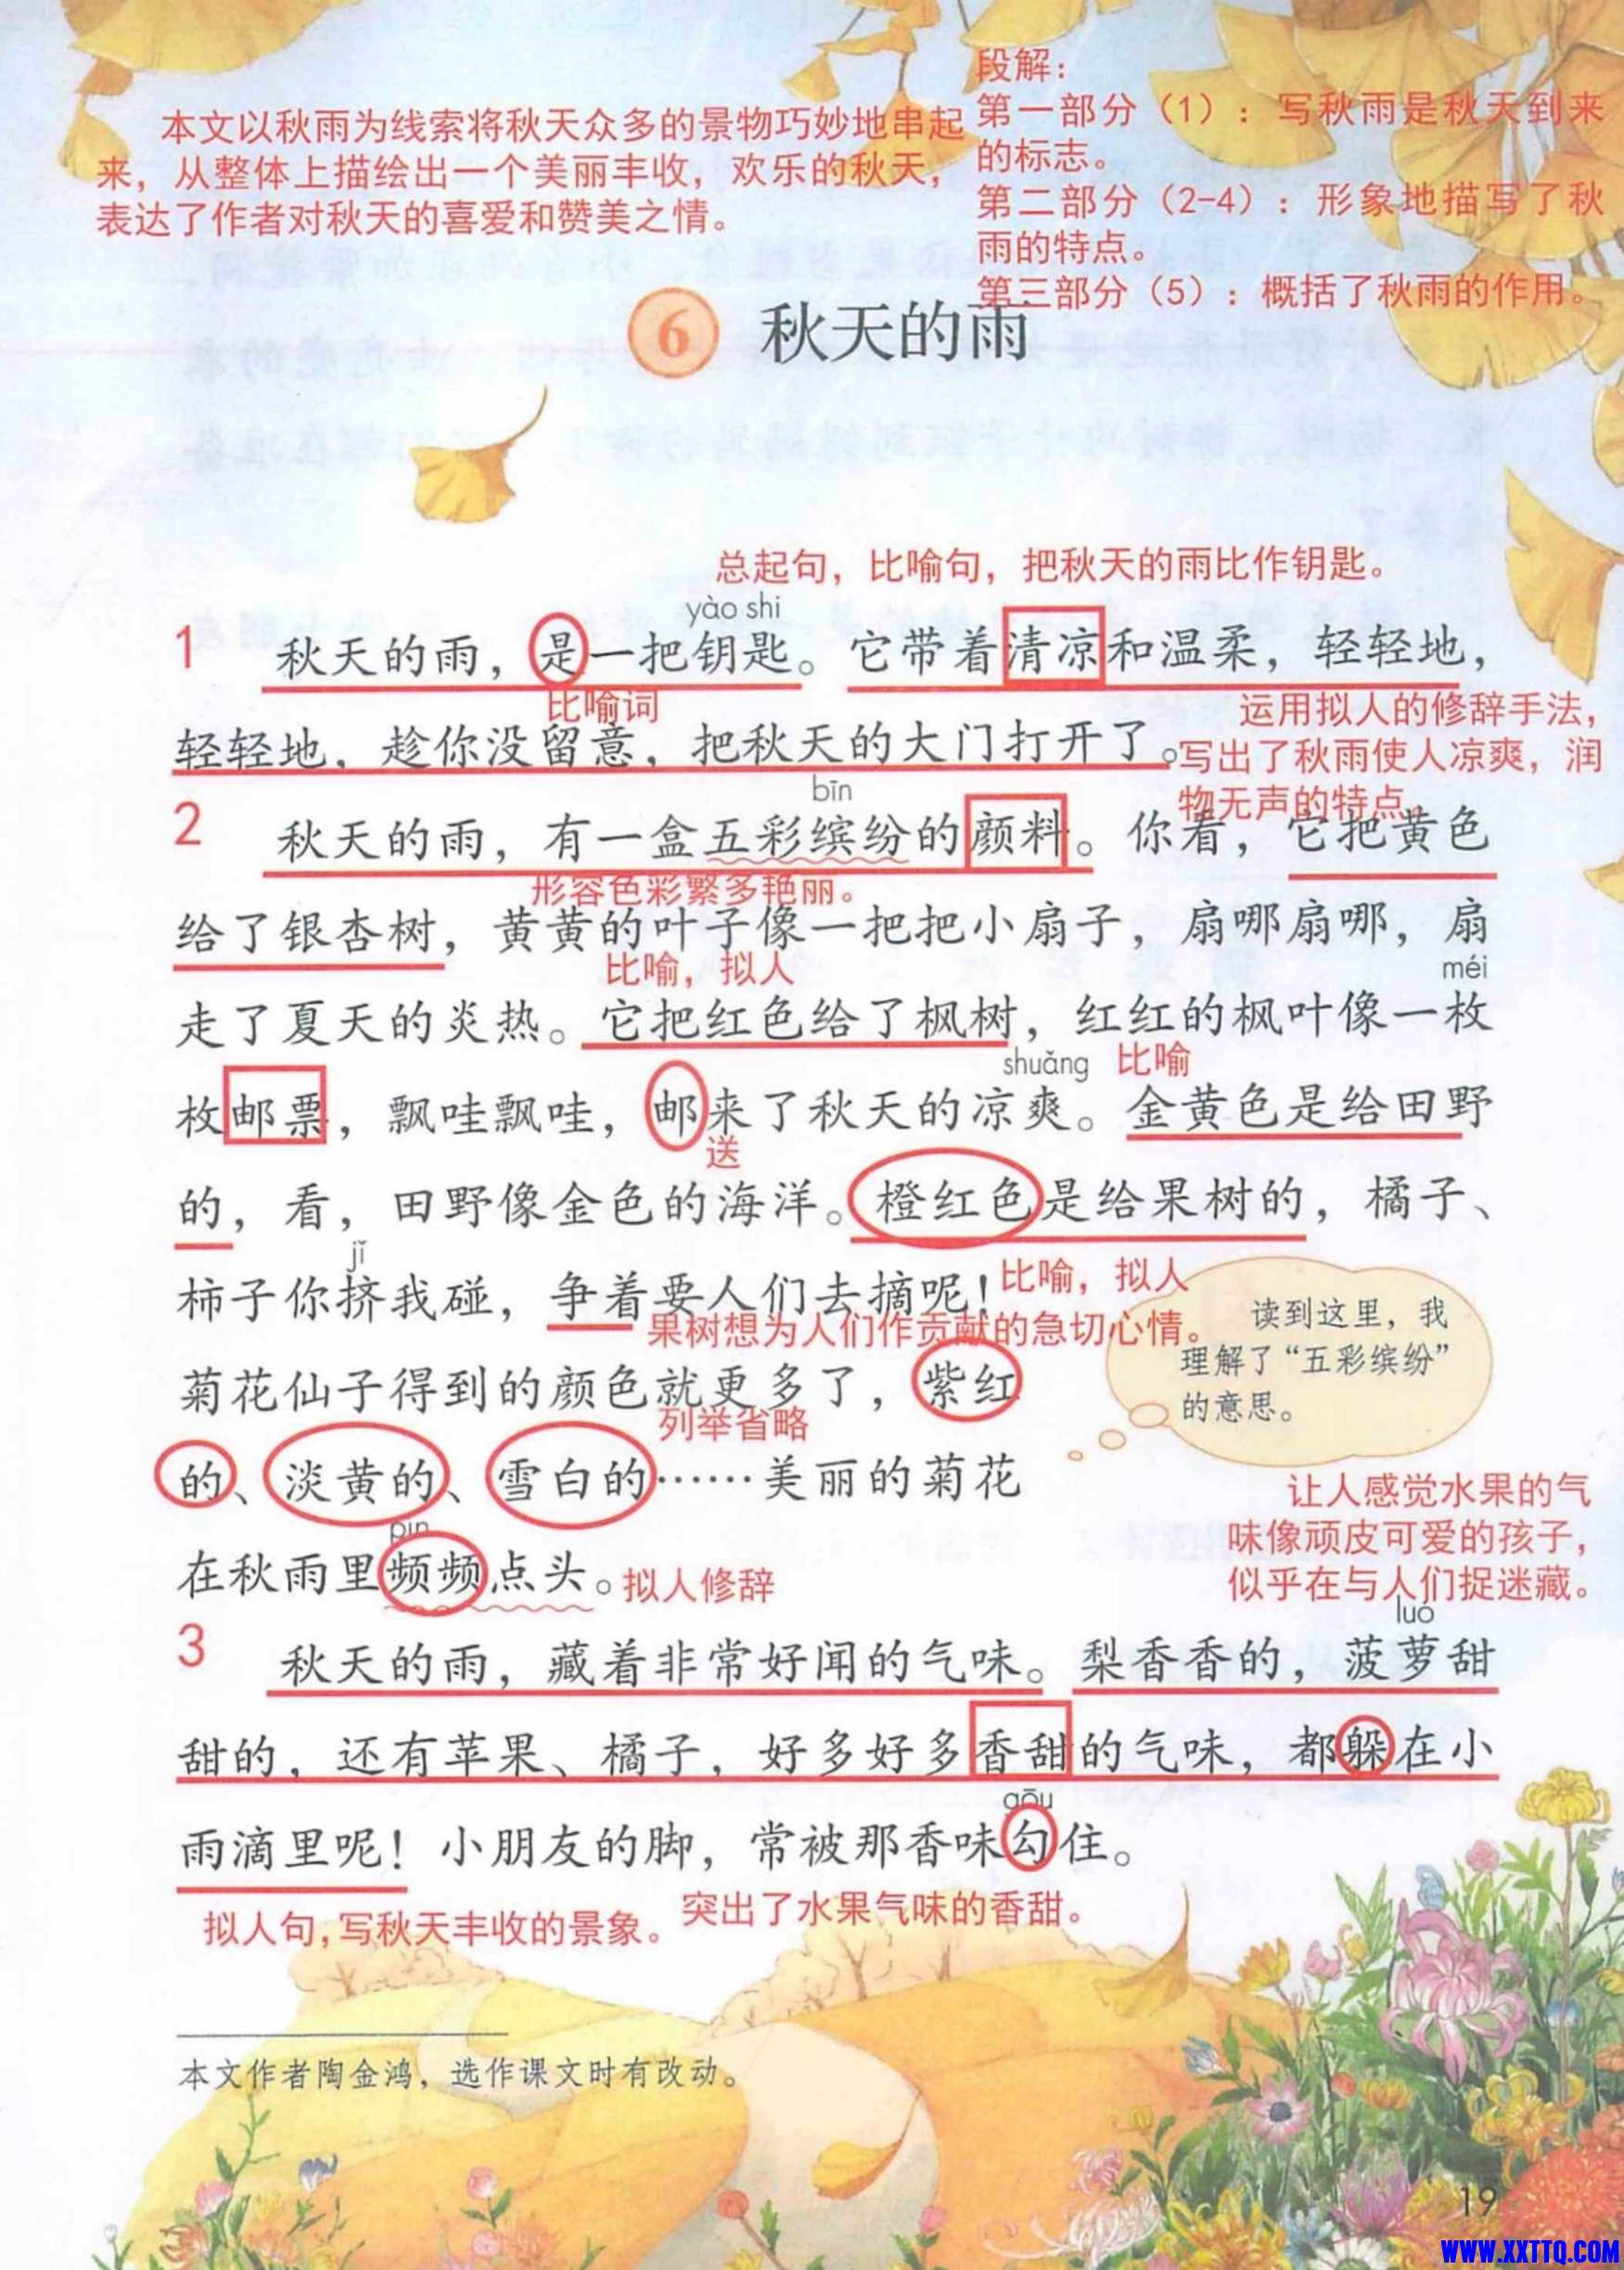 段解：
本文以秋雨为线索将秋天众多的景物巧妙地串起
来，从整体上描绘出一个美丽丰收，欢乐的秋天，
表达了作者对秋天的喜爱和赞美之情。
第一部分（1）：写秋雨是秋天到来
的标志。
第二部分（2-4）：形象地描写了秋
雨的特点。
第三部分（5）：概括了秋雨的作用。
6 秋天的雨
总起句，比喻句，把秋天的雨比作钥匙。
yào shi
1 秋天的雨，是一把钥匙。它带着清凉和温柔，轻轻地，
比喻词
轻轻地，趁你没留意，把秋天的大门打开了。
运用拟人的修辞手法，
写出了秋雨使人凉爽，润
物无声的特点。
bīn
2 秋天的雨，有一盒五彩缤纷的颜料。你看，它把黄色
形容色彩繁多艳丽。
给了银杏树，黄黄的叶子像一把把小扇子，扇哪扇哪，扇
比喻，拟人
méi
走了夏天的炎热。它把红色给了枫树，红红的枫叶像一枚
shuǎng
比喻
枚邮票，飘哇飘哇，邮来了秋天的凉爽。金黄色是给田野
送
的，看，田野像金色的海洋。橙红色是给果树的，橘子、
jǐ
柿子你挤我碰，争着要人们去摘呢！
比喻，拟人
果树想为人们作贡献的急切心情。
菊花仙子得到的颜色就更多了，紫红
列举省略
的、淡黄的、雪白的……美丽的菊花
pín
在秋雨里频频点头。
拟人修辞
读到这里，我
理解了“五彩缤纷”
的意思。
让人感觉水果的气
味像顽皮可爱的孩子，
似乎在与人们捉迷藏。
luó
3 秋天的雨，藏着非常好闻的气味。梨香香的，菠萝甜
甜的，还有苹果、橘子，好多好多香甜的气味，都躲在小
gōu
雨滴里呢！小朋友的脚，常被那香味勾住。
拟人句，写秋天丰收的景象。
突出了水果气味的香甜。
本文作者陶金鸿，选作课文时有改动。
19
WWW.XXTTQ.COM